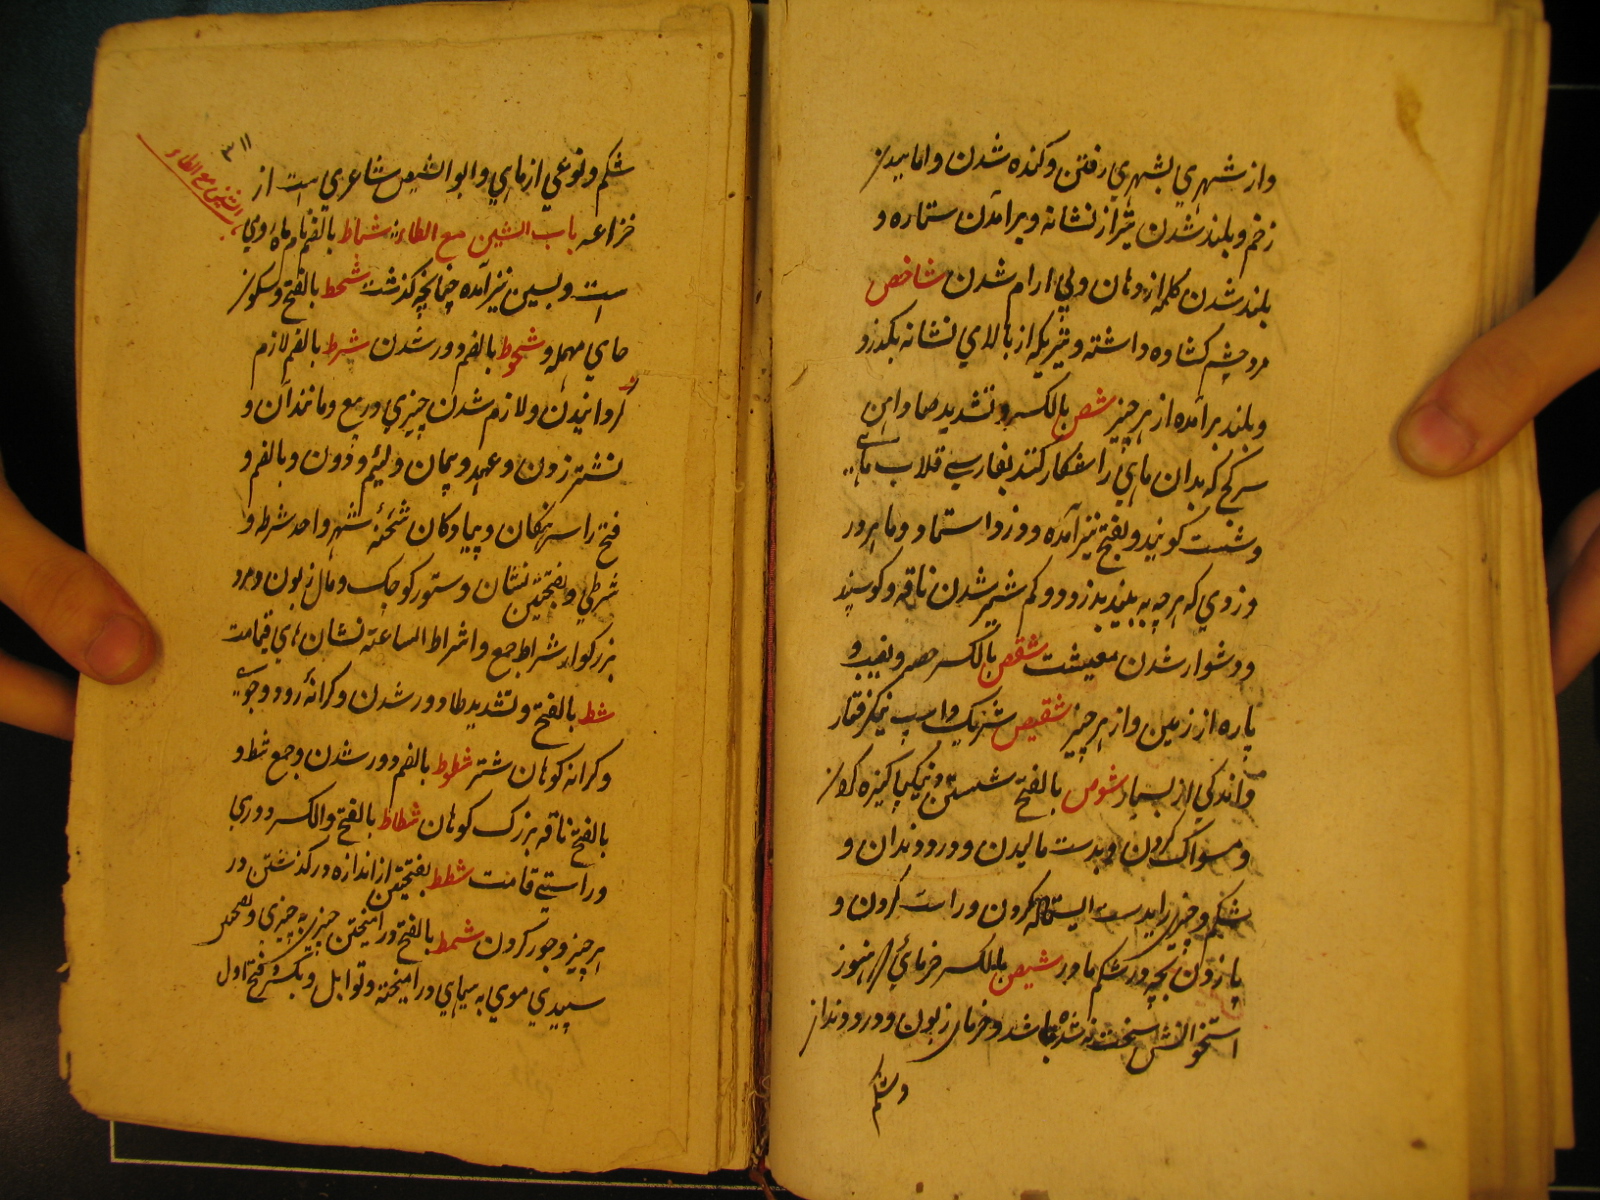 واز شهري بشهري رفتن وكنده شدن واماسيدن
زخم وبلند شدن تير از نشانه وبرآمدن ستاره و
بلند شدن كلمه از دهان وبي ارام شدن شاخص
مرد چشم كشاده داشته وتيريكه از بالاي نشانه بكذرد
وبلند برآمده از هر چيز شص بالكسر وتشديد صاد اهن
سر كج كه بدان ماهي را شكار كنند بفارسي قلاب ماهي
وشست كويند وبفتح نيز آمده ودزد استاد وماهر در
دزدي كه هر چه به بيند بدزدد وكم شير شدن ناقه وكوسپند
ودشوار شدن معيشت شقص بالكسر حصه ونصيب و
پاره از زمين واز هر چيز شقيص شريك واسپ نيكرفتار
واندكي از بسيار شوص بالفتح شستن ونيك پاكيزه كردن
ومسواك كردن وبدست ماليدن ودرد دندان و
شكم وچيزي را بدست ايستاده كردن وراست كردن و
پا زدن بچه در شكم مادر شيص بالكسر خرمائي كه هنوز
استخوانش سخت نه شده باشد وخرماي زبون ودرد دندان
وشكم
٣١١
الشين مع الطاء
شكم ونوعي از ماهي وابو الشيص شاعري است از
خزاعه باب الشين مع الطاء شباط بالضم نام ماه رومي
است وبسين نيز آمده چنانچه كذشت شحط بالفتح وسكون
حاي مهمله وشحوط بالضم دور شدن شرط بالفتح لازم
كردانيدن ولازم شدن چيزي در بيع ومانند آن و
نشتر زدن وعهد وپيمان ولئيم ودون وبالضم و
فتح را سرهنكان وپيادكان شحنه شهر واحد شرطه و
شرطي وبفتحتين نشان وستور كوچك ومال زبون ومرد
بزركوار اشراط جمع واشراط الساعة نشان هاي قيامت
شط بالفتح وتشديد طا دور شدن وكرانهٔ رود وجوي
وكرانه كوهان شتر شطوط بالضم دور شدن وجمع شط و
بالفتح ناقه بزرك كوهان شطاط بالفتح والكسر دوري
وراستي قامت شطط بفتحتين از اندازه دركذشتن در
هر چيز وجور كردن شمط بالفتح در اميختن چيزي به چيزي وبفتحتين
سپيدي موي به سياهي در اميخته وتوابل وبكسر وفتح اول